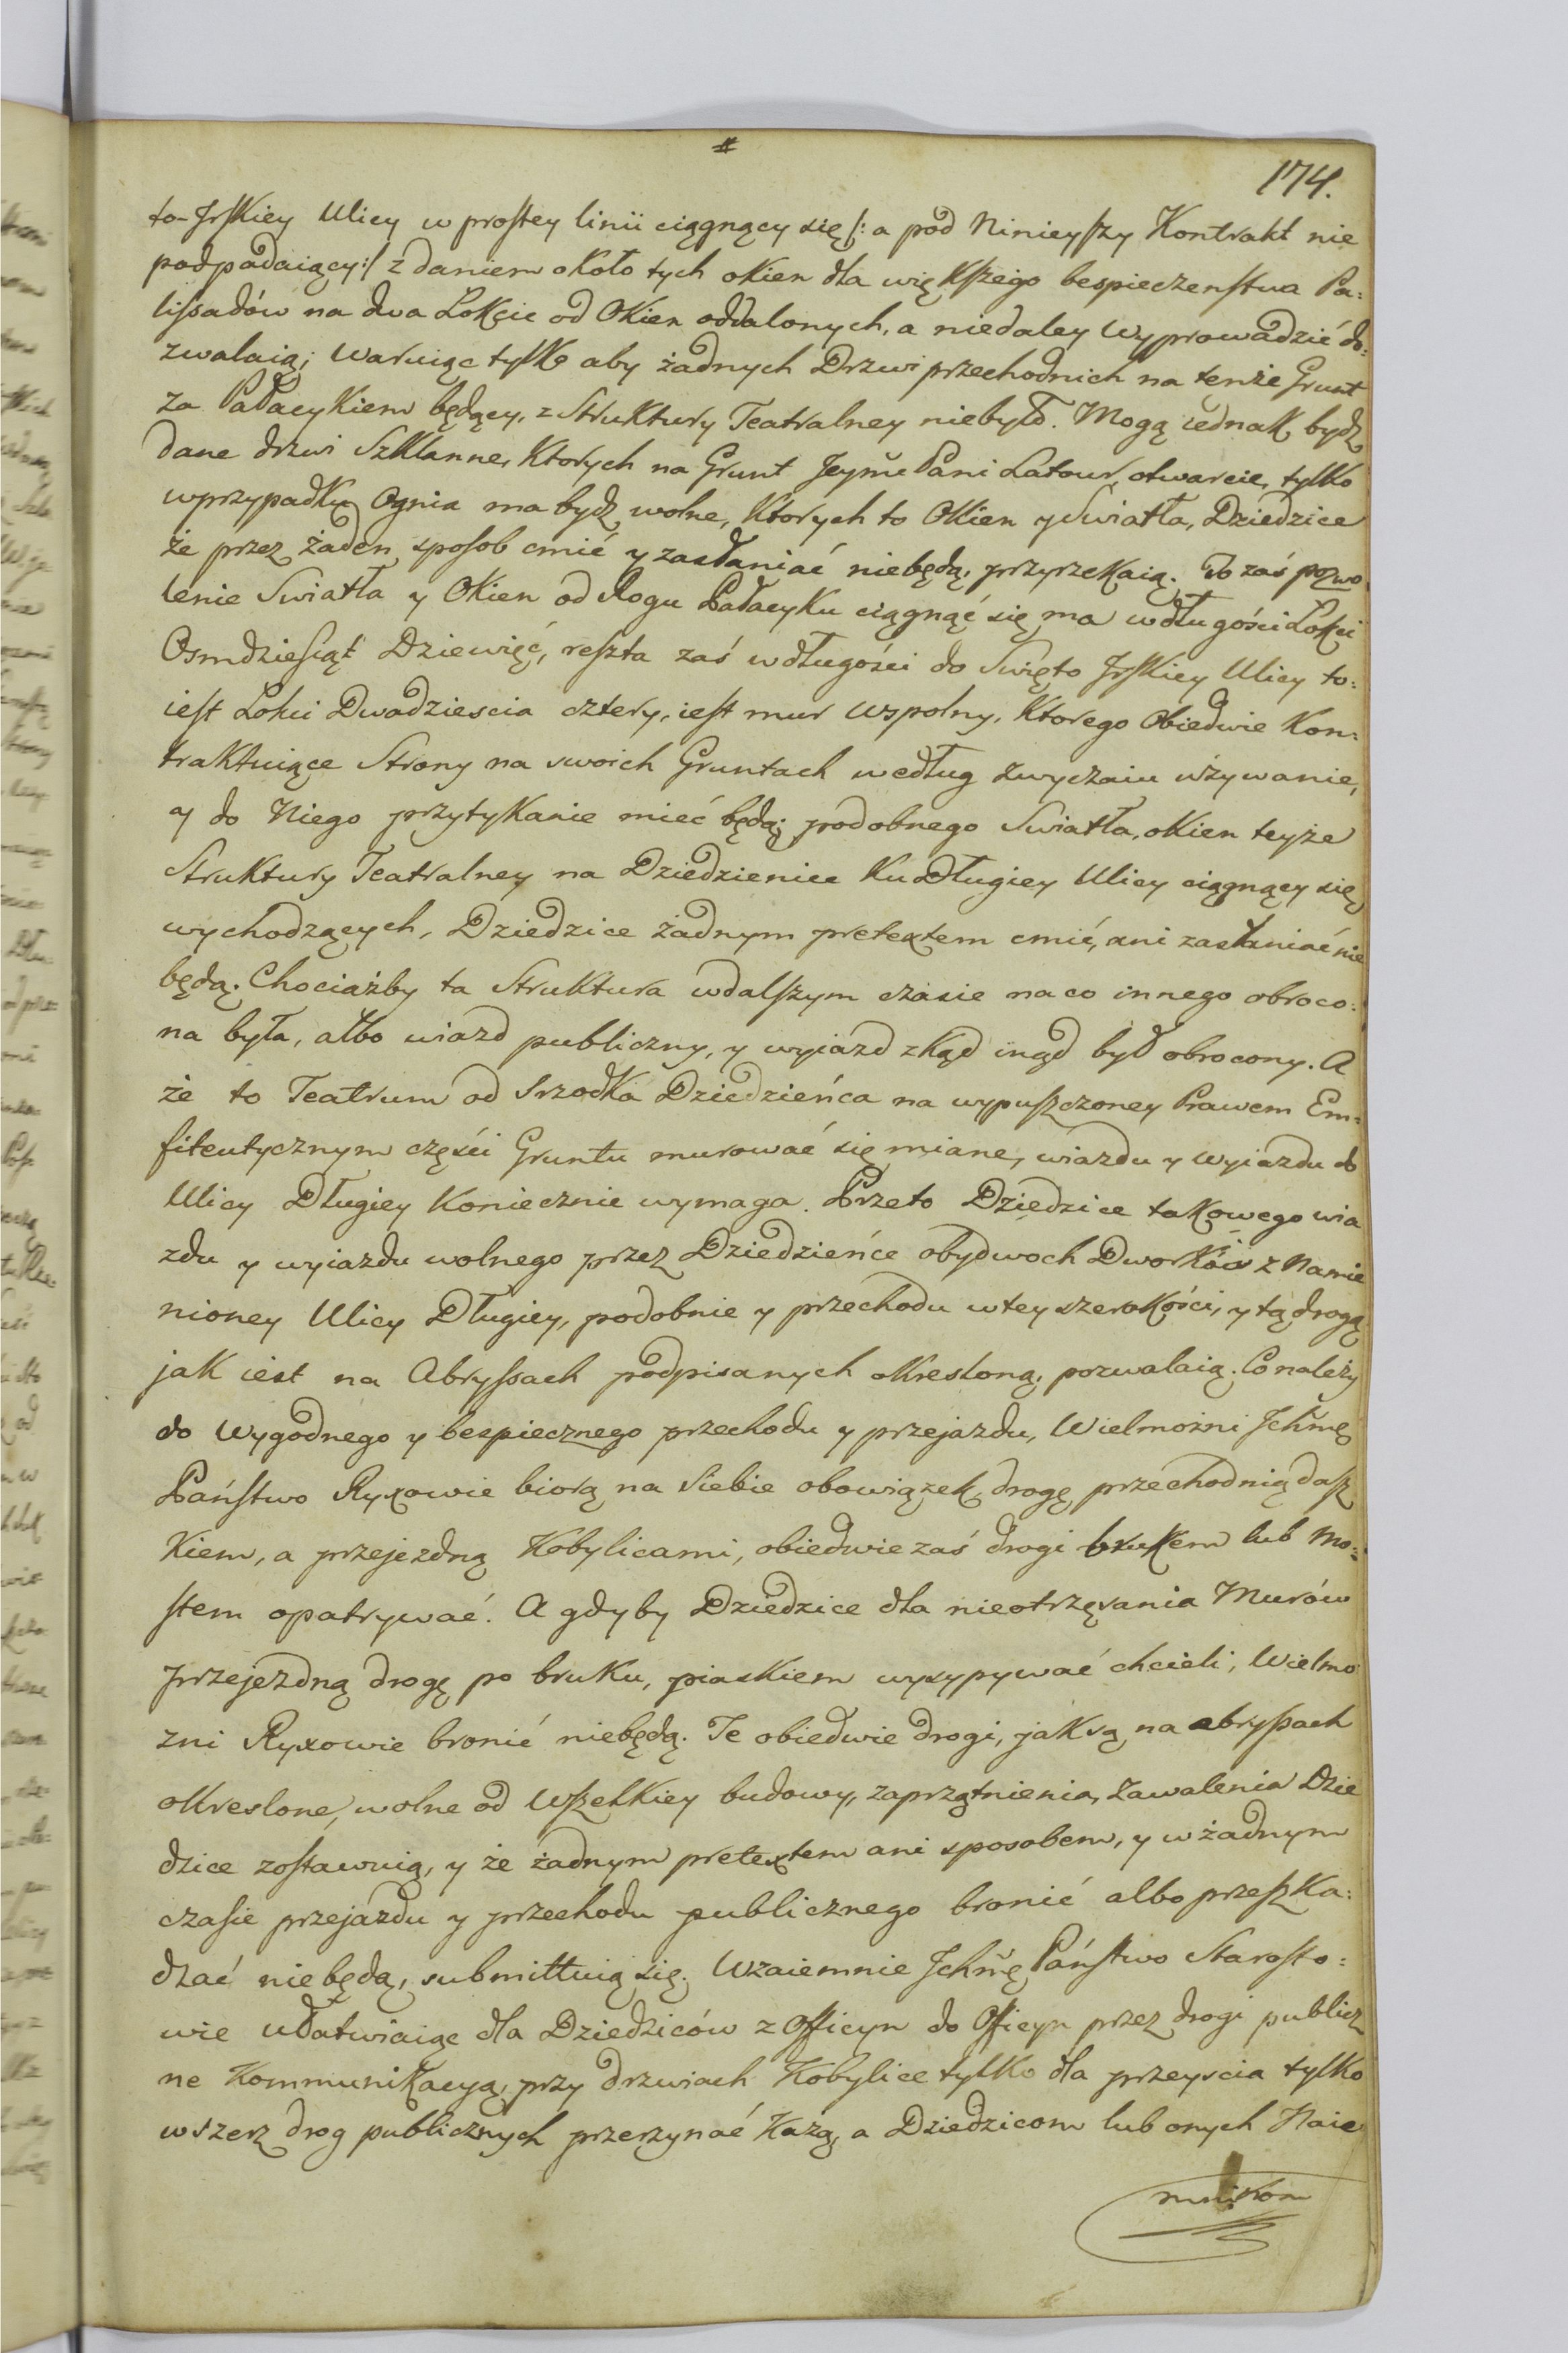 174.
to-Jrskiey Ulicy w prostey linii ciągnący się /: a pod Ninieyszy Kontrakt nie
podpadaiący :/ z daniem około tych okien dla większego bespieczenstwa Pa:
lissadów na dwa Łokcie od Okien oddalonych, a niedaley Wyprowadzić do:
zwalaią; Waruiąc tylko aby żadnych Drzwi przechodnich na tenże Grunt
za Pałacykiem będący, z Struktury Teatralney niebyło. Mogą iednak bydz
dane drzwi Szklanne, Ktorych na Grunt Jeyme Pani Latour, otwarcie, tylko
wprzypadku Ognia ma bydz wolne, Ktorych to Okien y Swiatła, Dziedzice
że przez żaden sposob cmić y zasłaniać niebędą, przyrzekaią. To zaś pozwo
lenie Swiatła y Okien od Rogu Pałacyku ciągnąć się ma wdługości Łokci
Osmdziesiąt Dziewięć, reszta zaś wdługości do Swięto Jrskiey Ulicy to:
iest Łokci Dwadziescia cztery, iest mur Wspolny, Ktorego Obiedwie Kon:
traktuiące Strony na swoich Gruntach według Zwyczaiu używanie,
y do Niego przytykanie mieć będą; podobnego Swiatła, okien teyże
Struktury Teatralney na Dziedzieniec Ku Długiey Ulicy ciągnący się
wychodzących, Dziedzice żadnym pretextem cmić, ani zasłaniać nie
będą. Chociażby ta Struktura wdalszym czasie na co innego obroco:
na była, albo wiazd publiczny, y wyiazd zkąd inąd był obrocony. A
że to Teatrum od Srzodka Dziedzieńca na wypuszczoney Prawem Em:
fiteutycznym części Gruntu murować się miane, wiazdu y Wyiazdu do
Ulicy Długiey Koniecznie wymaga. Przeto Dziedzice takowego wia
zdu y wyiazdu wolnego przez Dziedzieńce obydwoch Dworków z Namie
nioney Ulicy Długiey, podobnie y przechodu wtey szerokości, y tą drogą
jak iest na Abryssach podpisanych okresloną, pozwalaią. Co należy
do Wygodnego y bespiecznego przechodu y przejazdu, Wielmożni Jchmę
Państwo Ryxowie biorą na Siebie obowiązek, drogę przechodnią dasz
Kiem, a przejezdną Kobylicami, obiedwie zaś drogi brukem lub Mo:
stem opatrywać. A gdyby Dziedzice dla nieotrzęsania Murów
przejezdną drogę po bruku, piaskiem wysypywać chcieli, Wielmo
zni Ryxowie bronić niebędą. Te obiedwie drogi, jak są na abryssach
okreslone, wolne od Wszelkiey budowy, zaprzątnienia, Zawalenia Dzie
dzice zostawuią, y że żadnym pretextem ani sposobem, y w żadnym
czasie przejazdu y przechodu publicznego bronić albo przeszka:
dzać niebędą, submittuią się. Wzaiemnie Jchmę Państwo Starosto:
wie ułatwiaiąc dla Dziedziców z Officyn do Officyn przez drogi publicz
ne Kommunikacyą, przy drzwiach Kobylice tylko dla przeyscia tylko
wszerz drog publicznych przerzynać Każą, a Dziedzicom lub onych Naie
mnikom